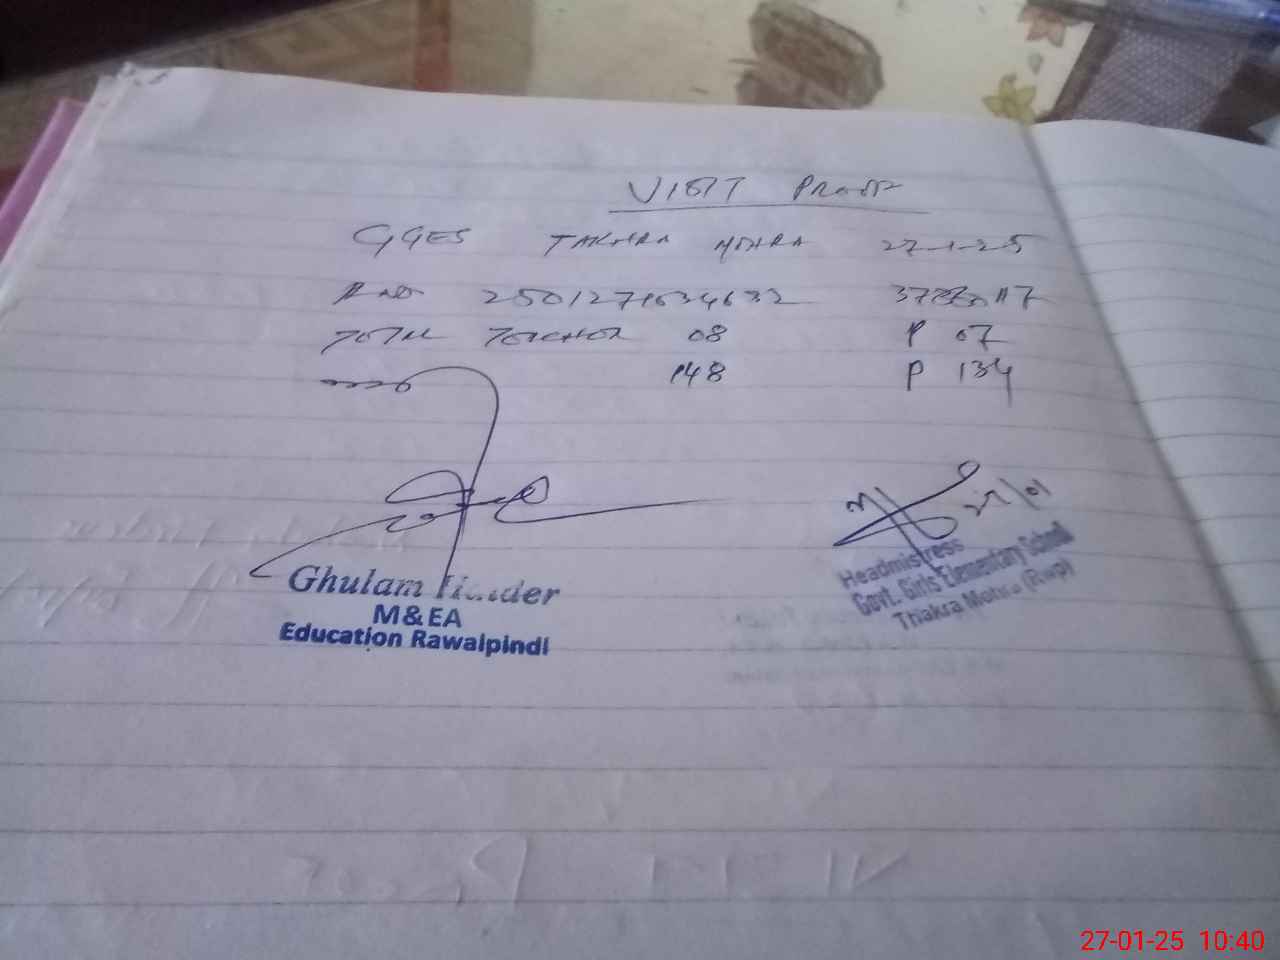 VISIT PROOF
GGES TAKHRA MOHRA 27-1-25
2501271634632
TOTAL TEACHER 08 P 07
148 P 134
27/01
Headmistress
Govt. Girls Elementary School
Thakra Mohra (Rwp)
Ghulam
M&EA
Education Rawalpindi
27-01-25 10:40